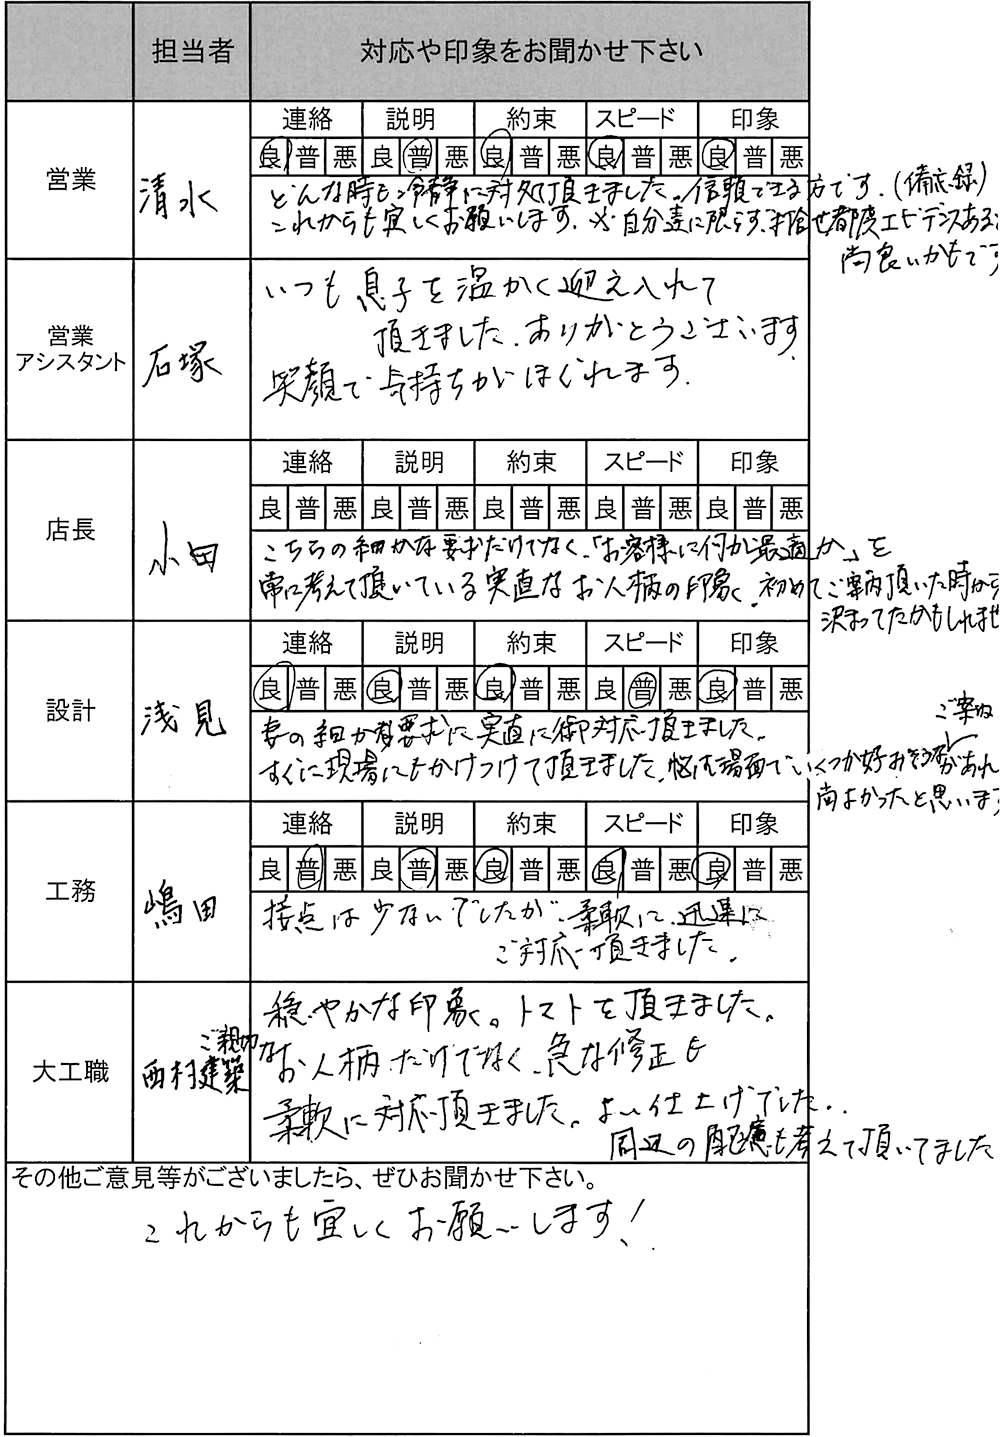 担当者 対応や印象をお聞かせ下さい
営業 清水
連絡 説明 約束 スピード 印象
良 普 悪 良 普 悪 良 普 悪 良 普 悪 良 普 悪
どんな時も冷静に対処頂きました。信頼できる方です.(備忘録)
これからも宜しくお願いします. ※自分達に限らず、打合せ都度エビデンスある
尚良いかもです
営業
アシスタント 石塚
いつも息子を温かく迎え入れて
頂きました.ありがとうございます
笑顔で気持ちがほぐれます.
店長 小田
連絡 説明 約束 スピード 印象
良 普 悪 良 普 悪 良 普 悪 良 普 悪 良 普 悪
こちらの細かな要求だけでなく、「お客様に何が最適か」を
常に考えて頂いている実直なお人柄の印象.初めてご案内頂いた時から
決まってたかもしれませ
設計 浅見
連絡 説明 約束 スピード 印象
良 普 悪 良 普 悪 良 普 悪 良 普 悪 良 普 悪
妻の細かな要求に実直に御対応頂きました.
ご案ね
すぐに現場にもかけつけて頂きました.悩む場面でいくつか好おそうながあれ
尚よかったと思います
工務 嶋田
連絡 説明 約束 スピード 印象
良 普 悪 良 普 悪 良 普 悪 良 普 悪 良 普 悪
接点は少ないでしたが、柔軟に.迅速に
ご対応頂きました.
大工職 西村建築
穏やかな印象。トマトを頂きました。
ご親切な お人柄だけでなく、急な修正も
柔軟に対応頂きました。よい仕上げでした..
周辺の配慮も考えて頂いてました
その他ご意見等がございましたら、ぜひお聞かせ下さい。
これからも宜しくお願いします!